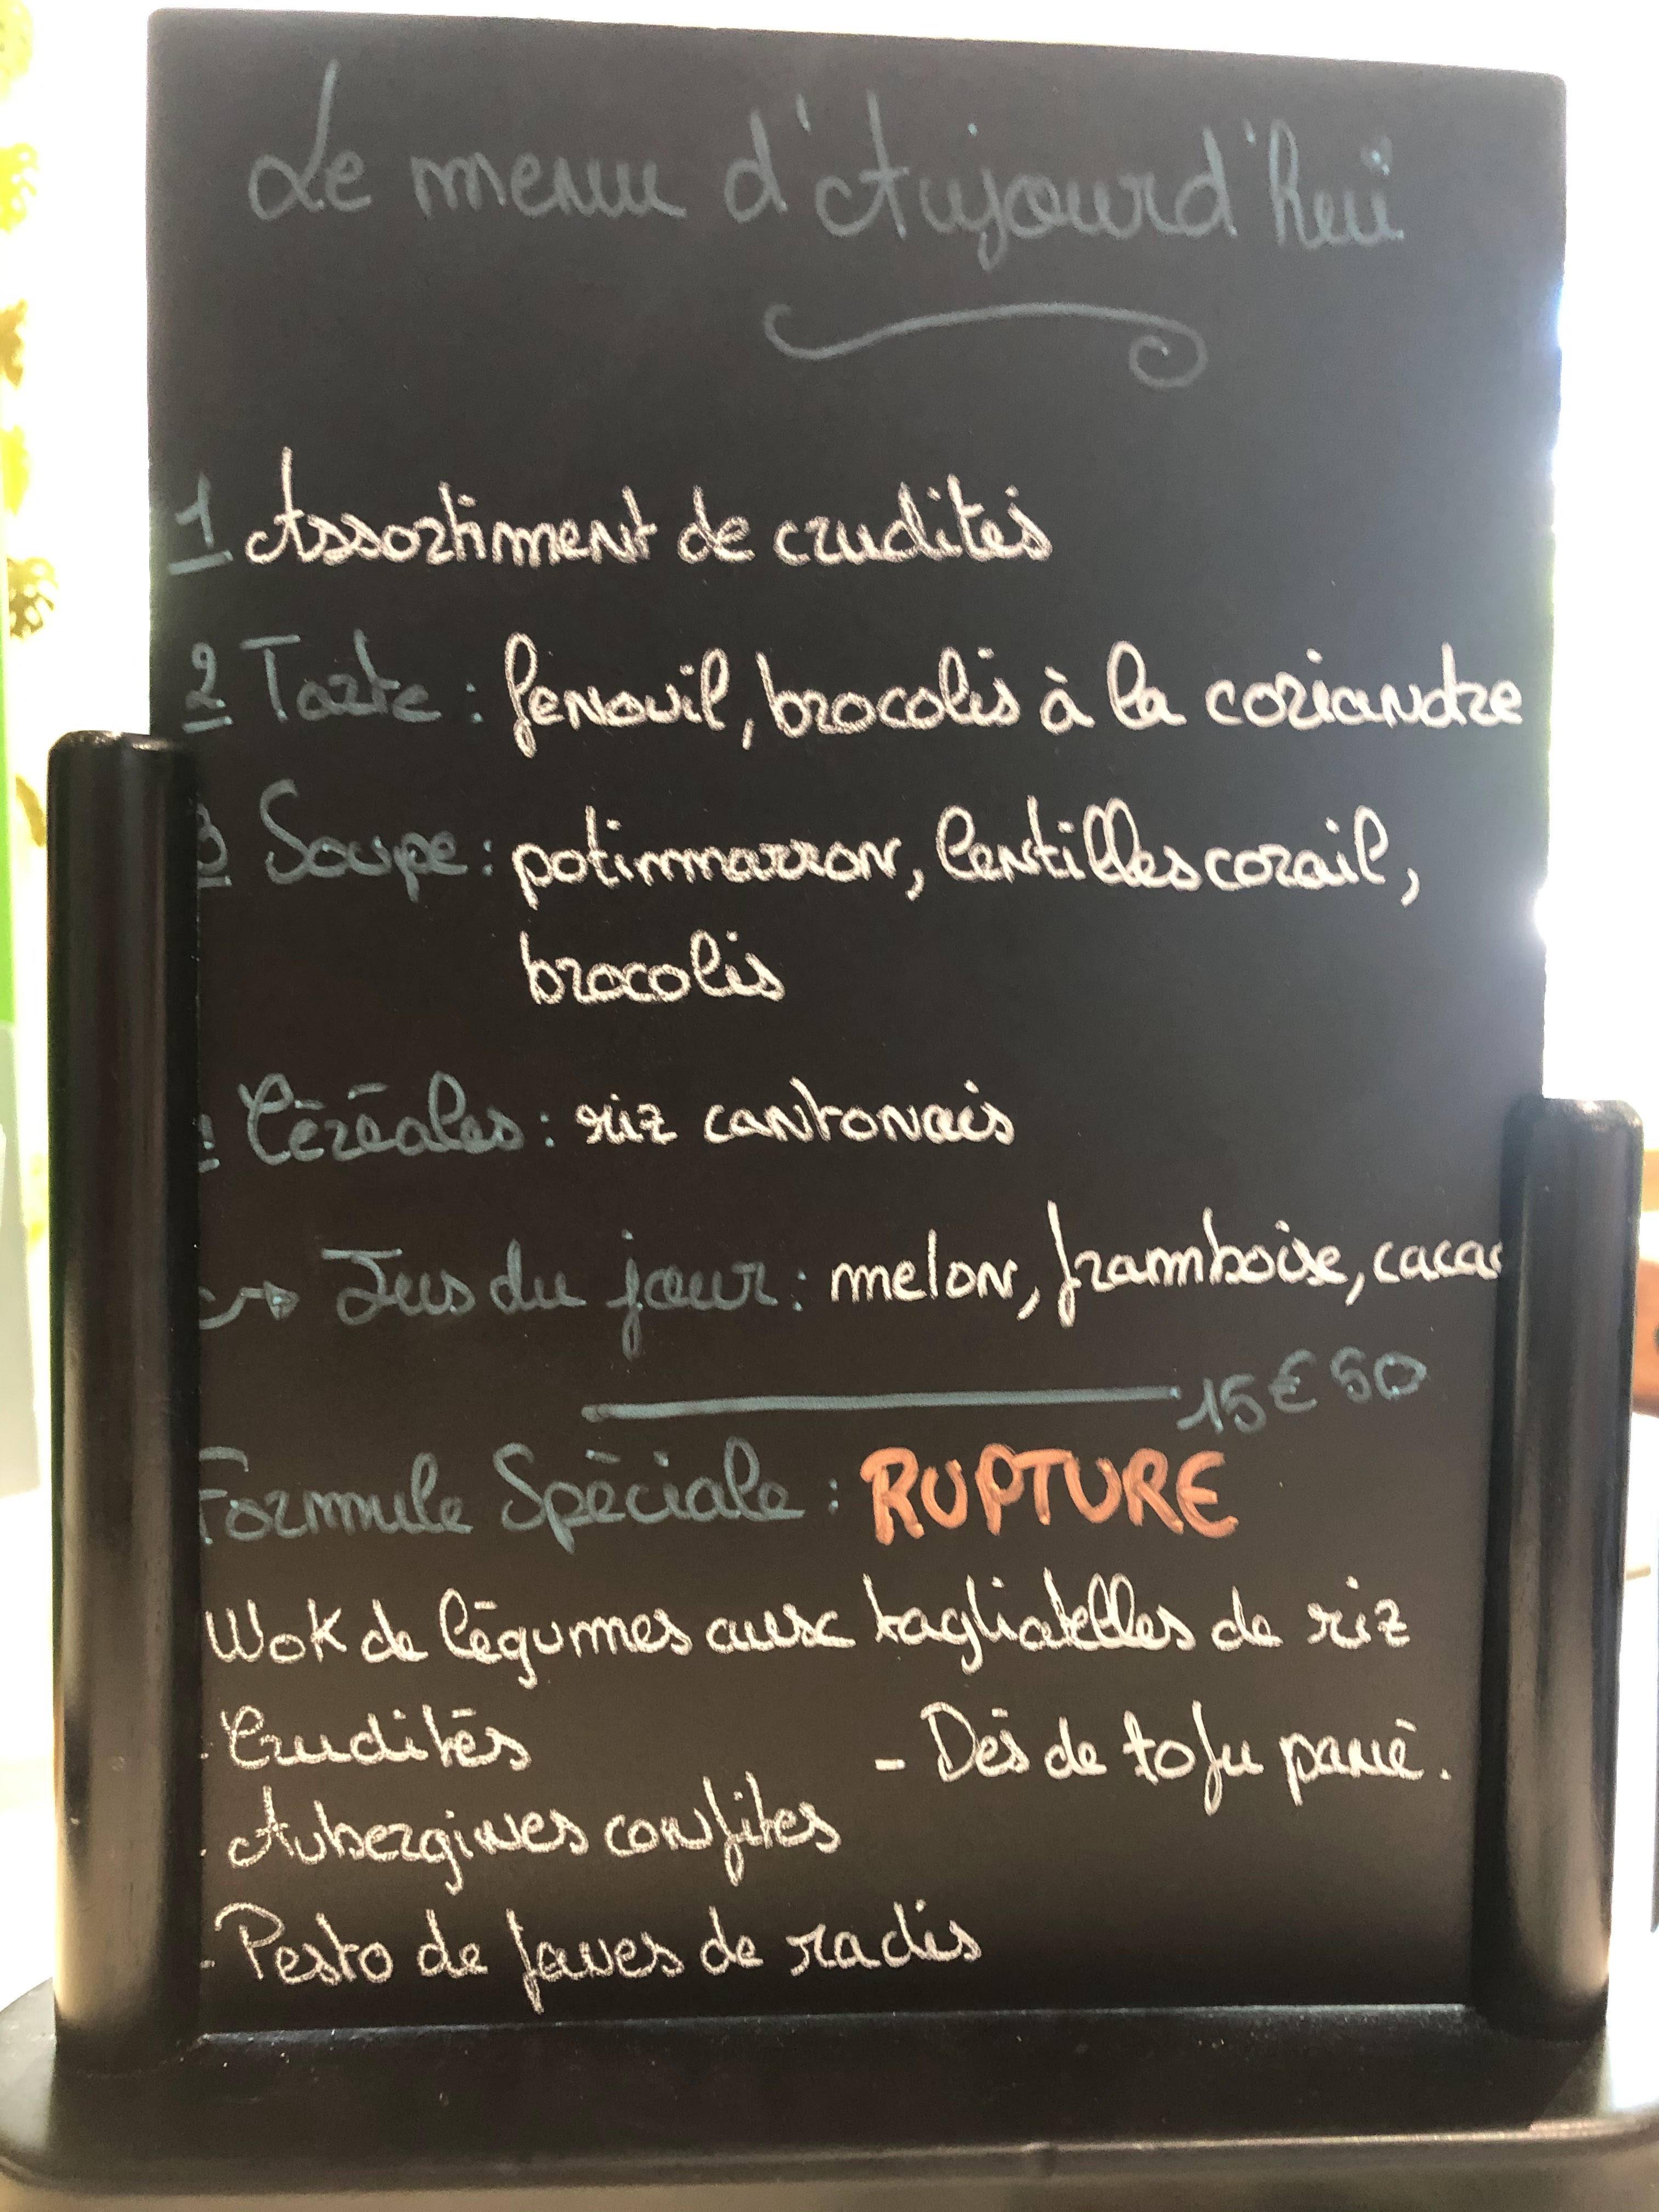 Le menu d'Aujourd'hui
1 Assortiment de crudités
2 Tarte : fenouil, brocolis à la coriandre
3 Soupe : potimmarron, lentilles corail,
brocolis
Céréales : riz cantonais
Jus du jour : melon, framboise, cacao
15€50
Formule Spéciale : RUPTURE
Wok de légumes aux tagliatelles de riz
- Crudités - Dés de tofu pané.
- Aubergines confites
- Pesto de fanes de radis